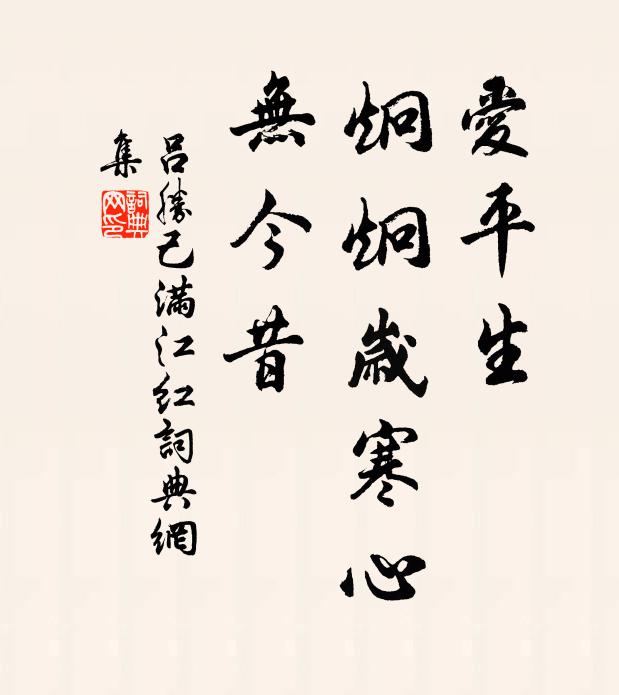 愛平生
炯炯歲寒心
無今昔
呂勝己滿江紅詞典網
集
詞典网印